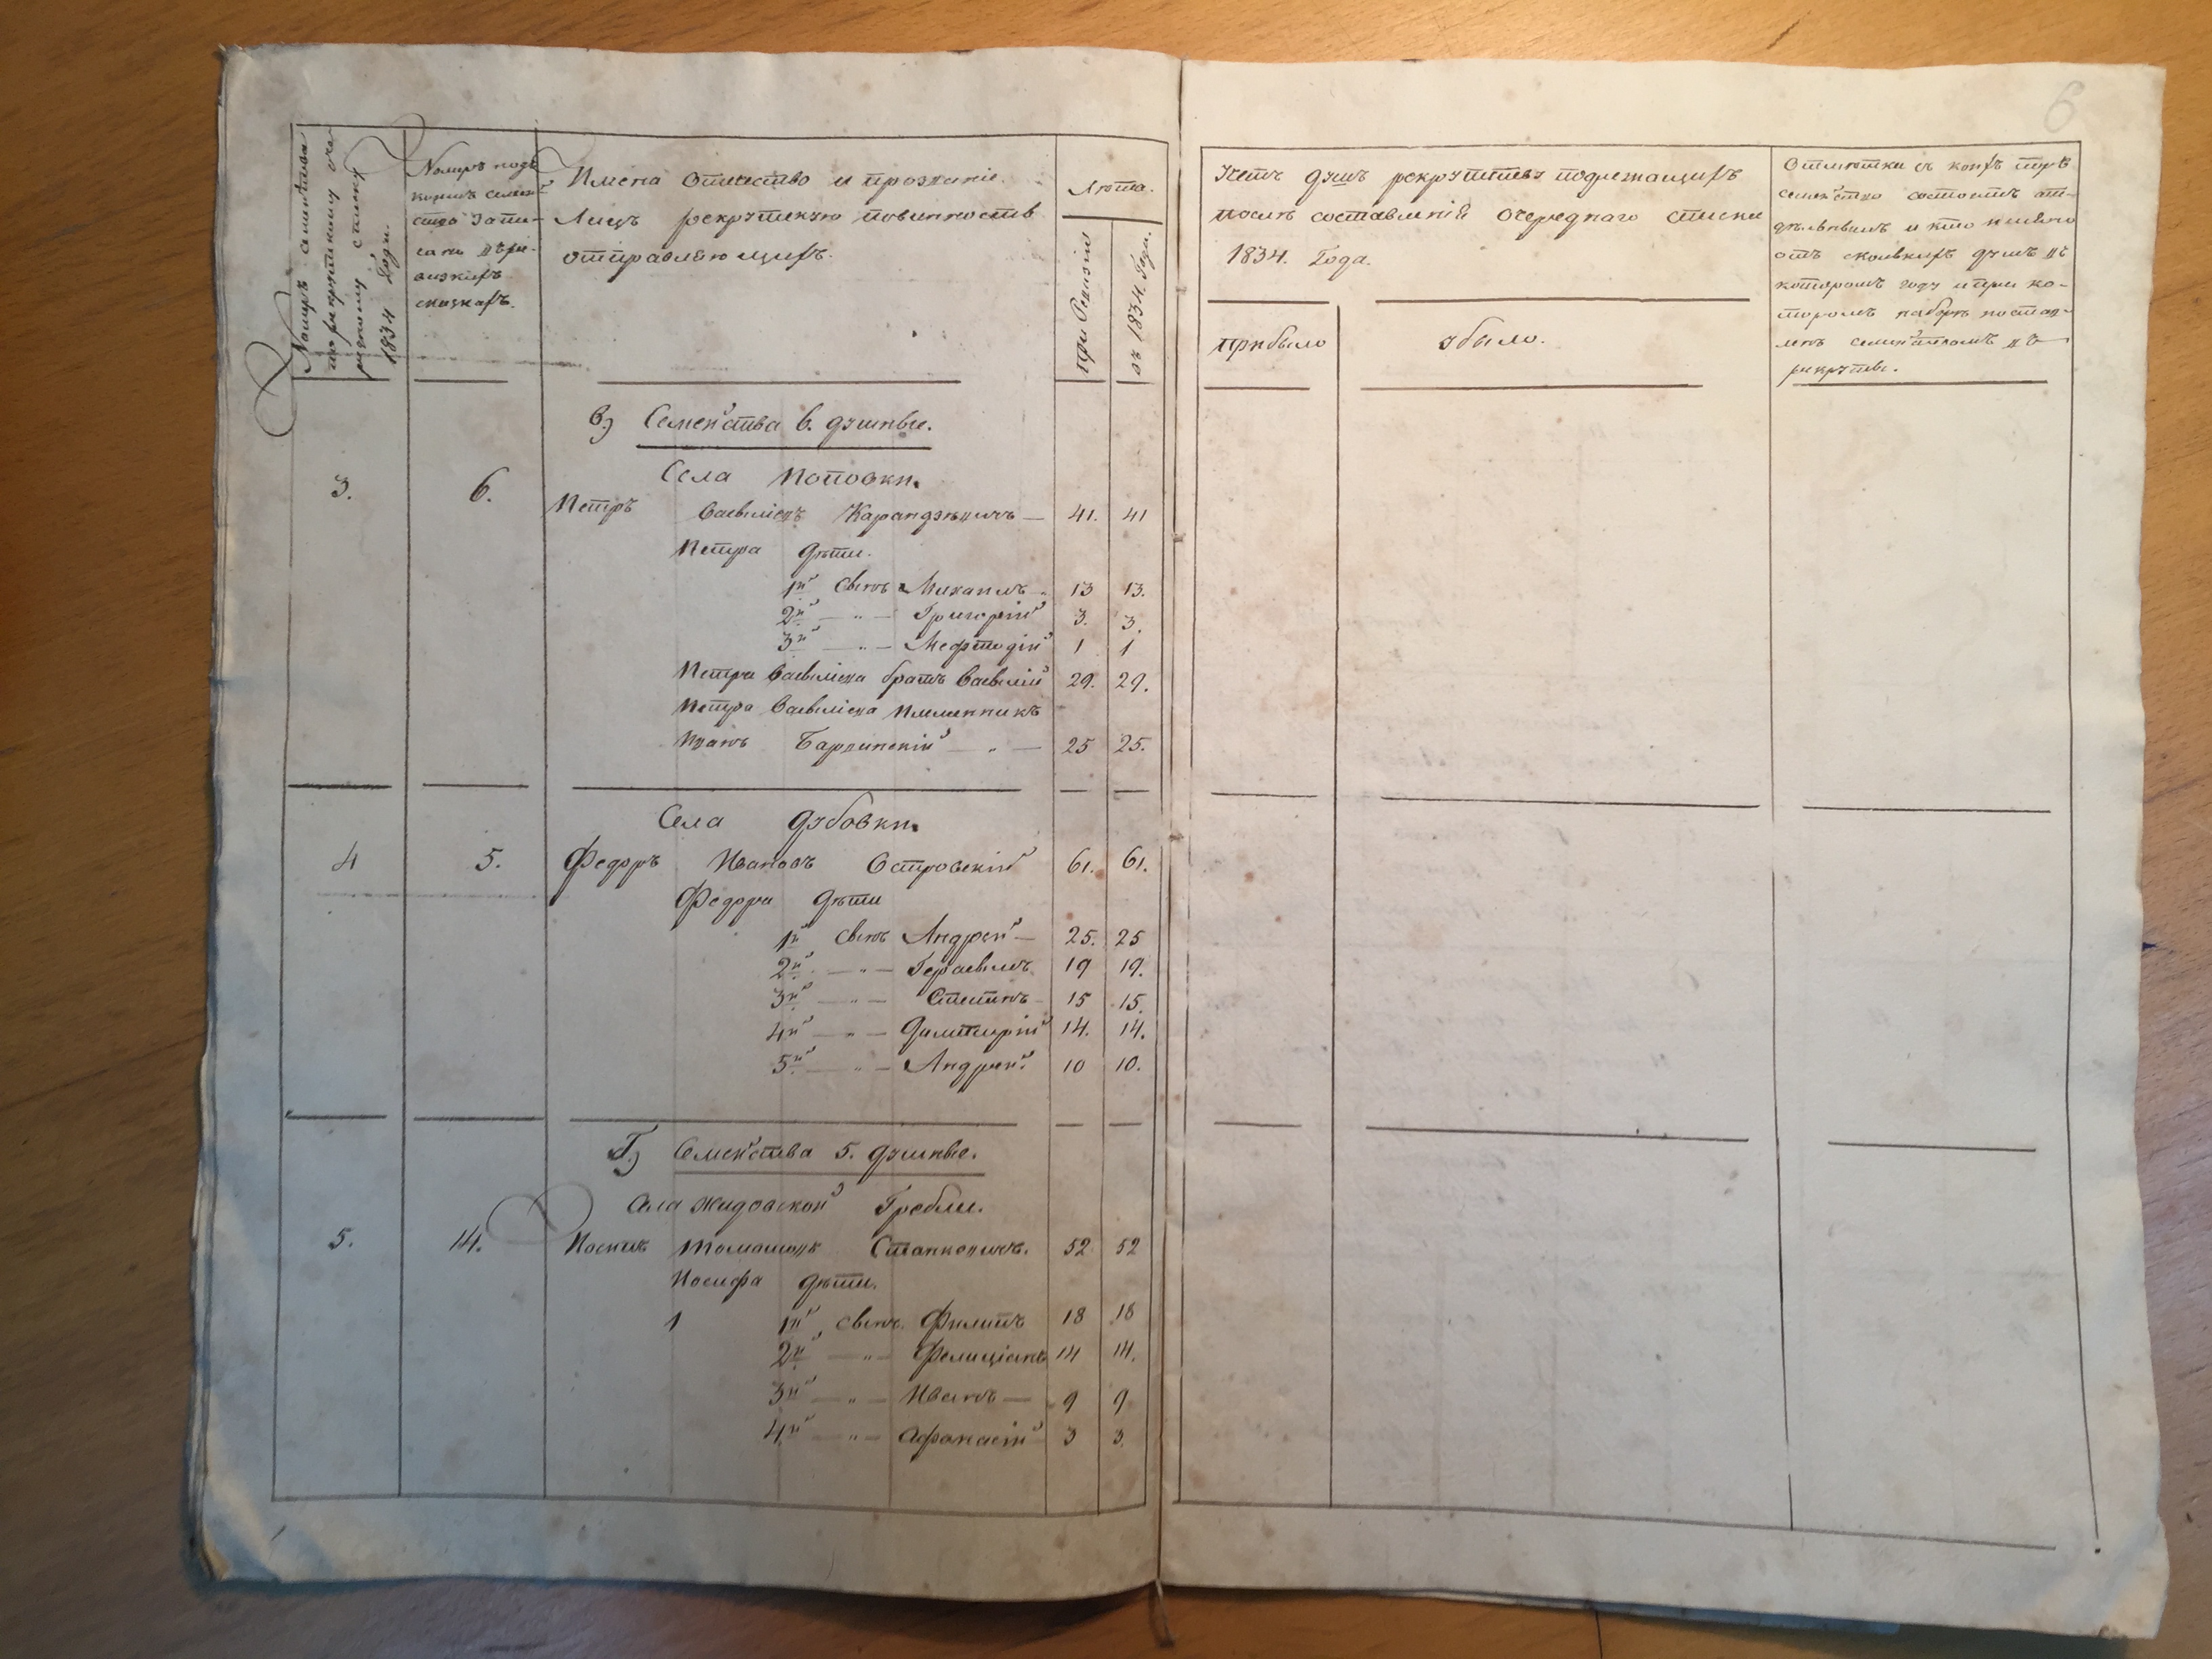 Номеръ семейства
по рекрутскому оче
редному списку
1834 Года.
Номеръ подъ
коимъ семей
ство запи-
сано въ ре-
визкихъ
сказкахъ.
Имена Отчество и прозваніе
Лицъ рекрутскую повинность
отправляющихъ.
Лѣта.
при Ревизіи
въ 1834. Году.
в.) Семейства 6. душные.
Села Поповки.
3. 6. Петръ Васильевъ — 41. 41
Петра дѣти.
1й сынъ Михаилъ — 13 13.
2й — " — Григорій 3. 3.
3й — " — Мефтодій 1 1
Петра Васильева братъ Василій 29. 29.
Петра Васильева племенникъ
Иванъ — " — 25 25.
Села Дубовки.
4 5. Федоръ Ивановъ Островскій 61. 61.
Федора дѣти
1й сынъ Андрей — 25. 25
2й — " — Герасимъ 19 19.
3й — " — Степанъ 15 15.
4й — " — Димитрій 14. 14.
5й — " — Андрей 10 10.
Г.) Семейства 5. душные.
Села Жидовской Гребли.
5. 14. Иосифъ Томашовъ Станкевичъ. 52 52
Иосифа дѣти.
1 1й сынъ Филипъ 18 18
2й — " — Фелиціанъ 14 14.
3й — " — Иванъ — 9 9
4й — " — Афанасій 3 3.
6
душъ рекрутству подлежащихъ
послѣ составленія очереднаго списка
1834. Года.
прибыло
убыло.
Отмѣтки съ коихъ поръ
семейство состоитъ от-
дѣльнымъ и кто имянно
отъ сколькихъ душъ въ
которомъ году и при ко-
торомъ наборѣ постав-
ленъ семействомъ въ
рекруты.